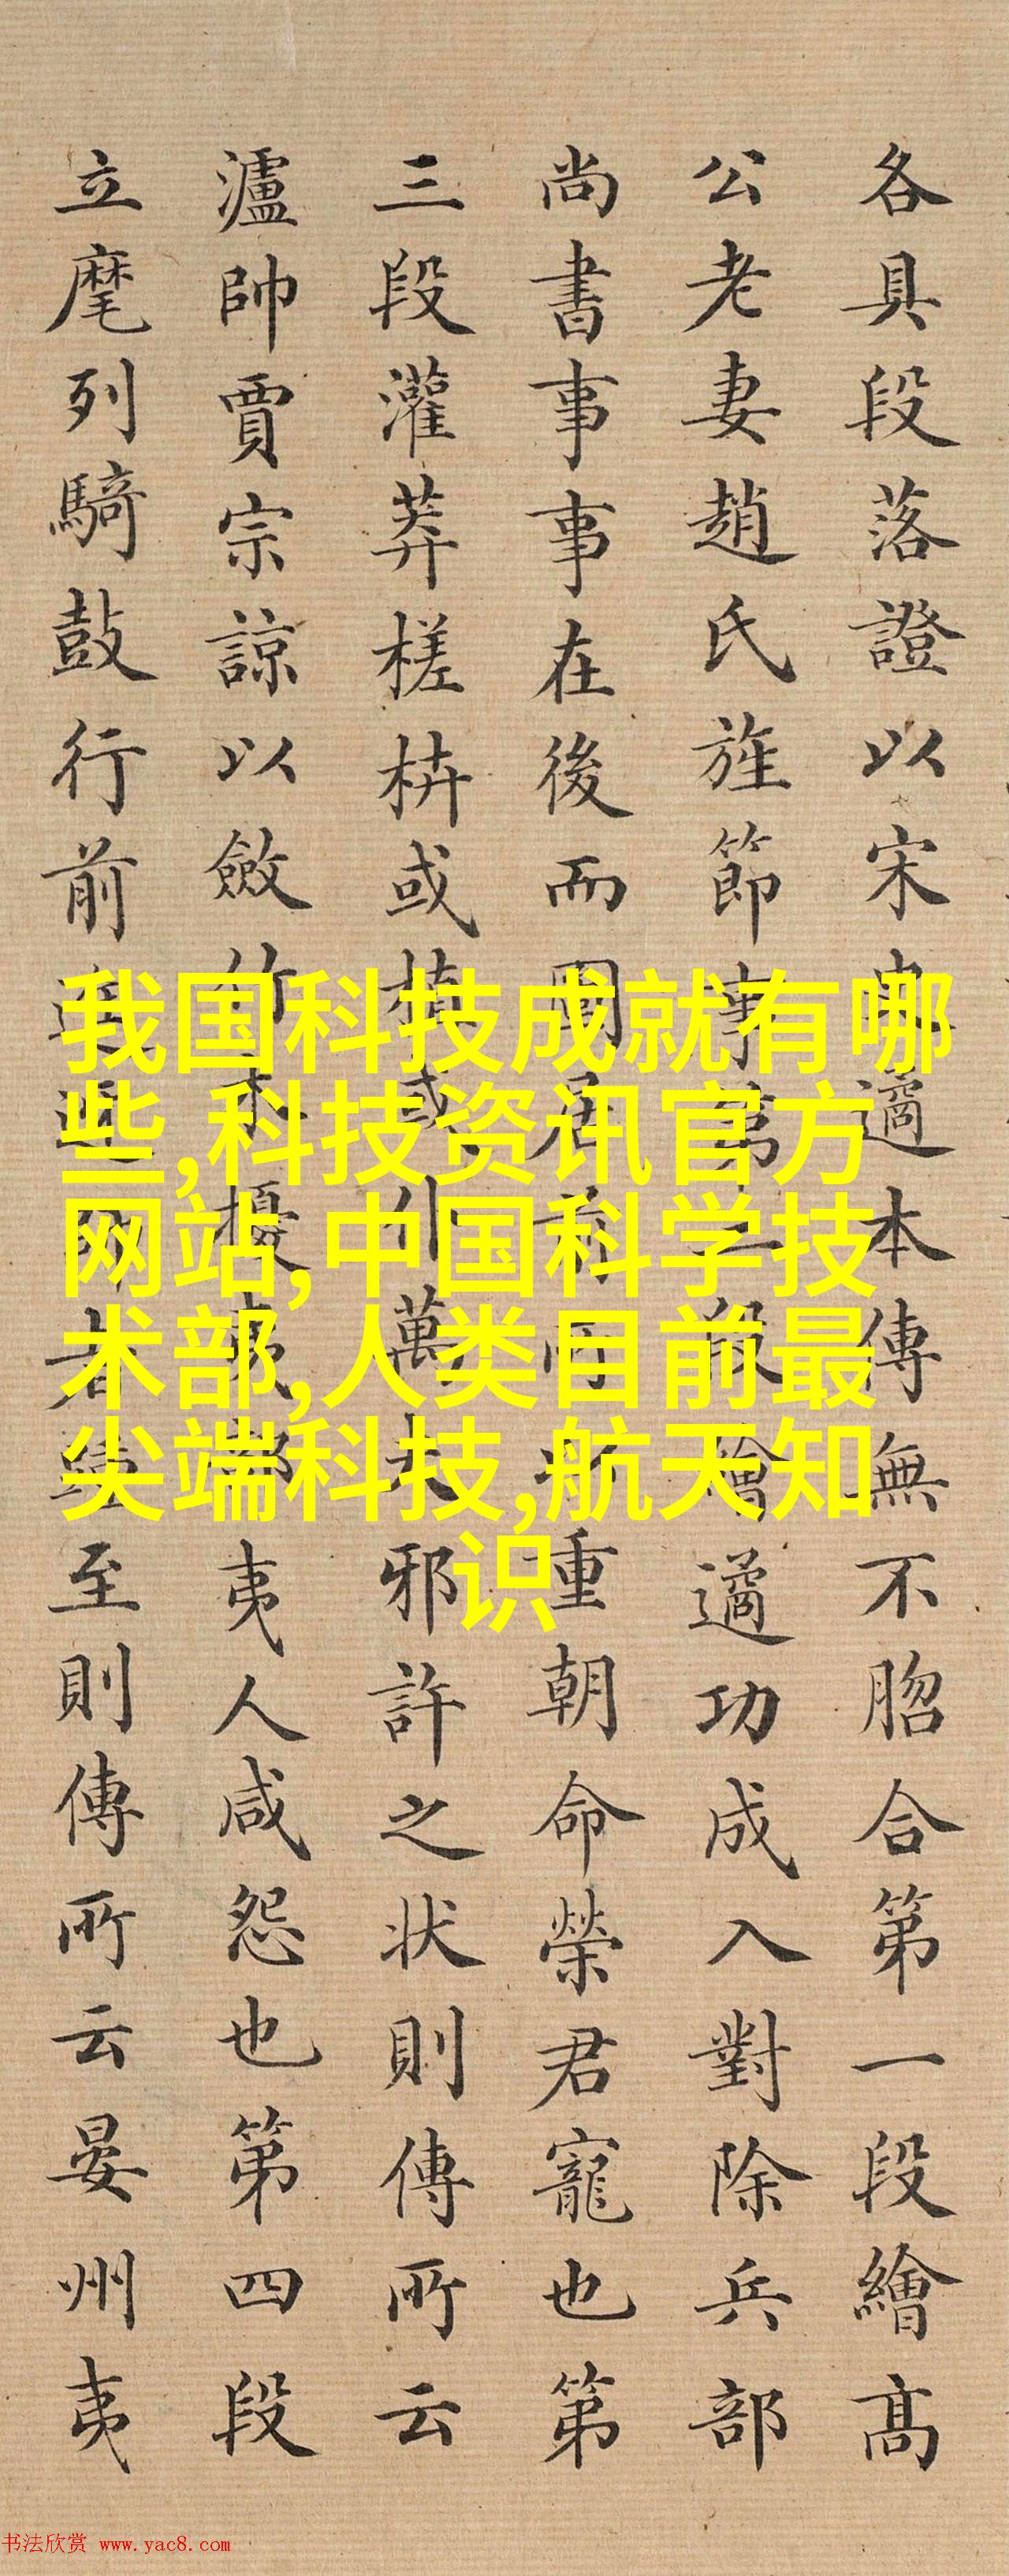 各具段落證以宋史遹本傳無不脗合第一段繪高
公老妻趙氏旌節事第二段繪遹功成入對除兵部
尚書事事在後而圖居前所以重朝命榮君寵也第
三段灌莽槎枿或或萬木邪許之狀則傳所云
瀘帥賈宗諒以斂竹木擾夷部夷人咸怨也第四段
立麾列騎鼓行前者至則傳所云晏州夷
我国科技成就有哪
些,科技资讯官方
网站,中国科学技
术部,人类目前最
尖端科技,航天知
识
书法欣赏 www.yac8.com